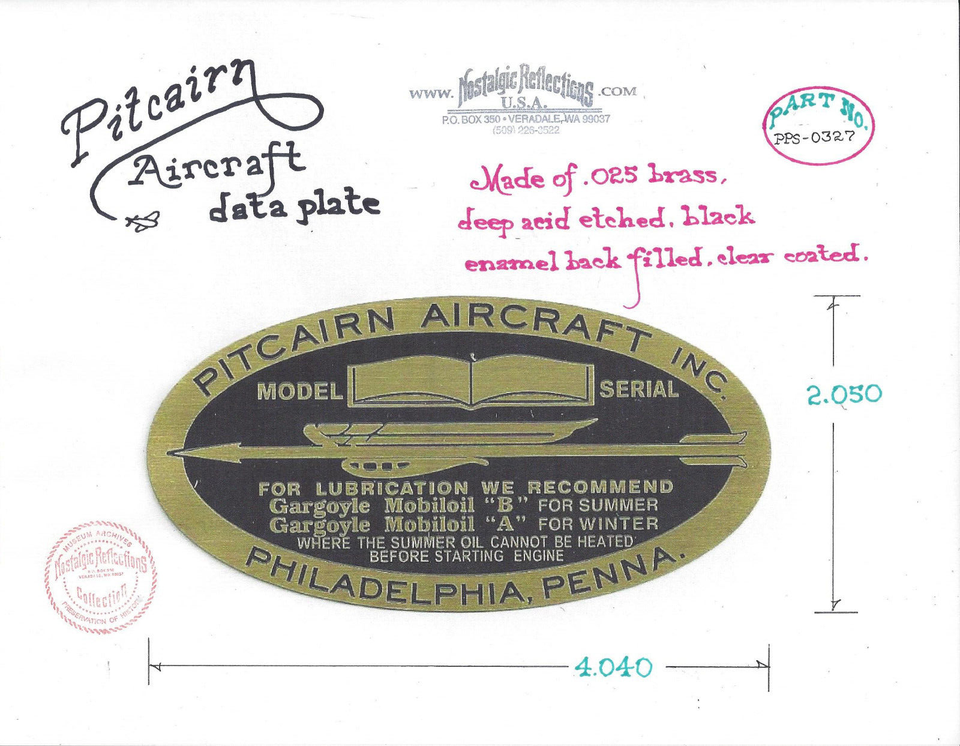 Pitcairn
Aircraft
data plate
www. Nostalgic Reflections .COM
U.S.A.
P.O. BOX 350 • VERADALE, WA 99037
(509) 226-3522
PART NO.
PPS-0327
Made of .025 brass,
deep acid etched, black
enamel back filled, clear coated.
PITCAIRN AIRCRAFT INC.
MODEL SERIAL
FOR LUBRICATION WE RECOMMEND
Gargoyle Mobiloil "B" FOR SUMMER
Gargoyle Mobiloil "A" FOR WINTER
WHERE THE SUMMER OIL CANNOT BE HEATED
BEFORE STARTING ENGINE
PHILADELPHIA, PENNA.
2.050
4.040
MUSEUM ARCHIVES
Nostalgic Reflections
Collection
PRESERVATION OF HISTORIC